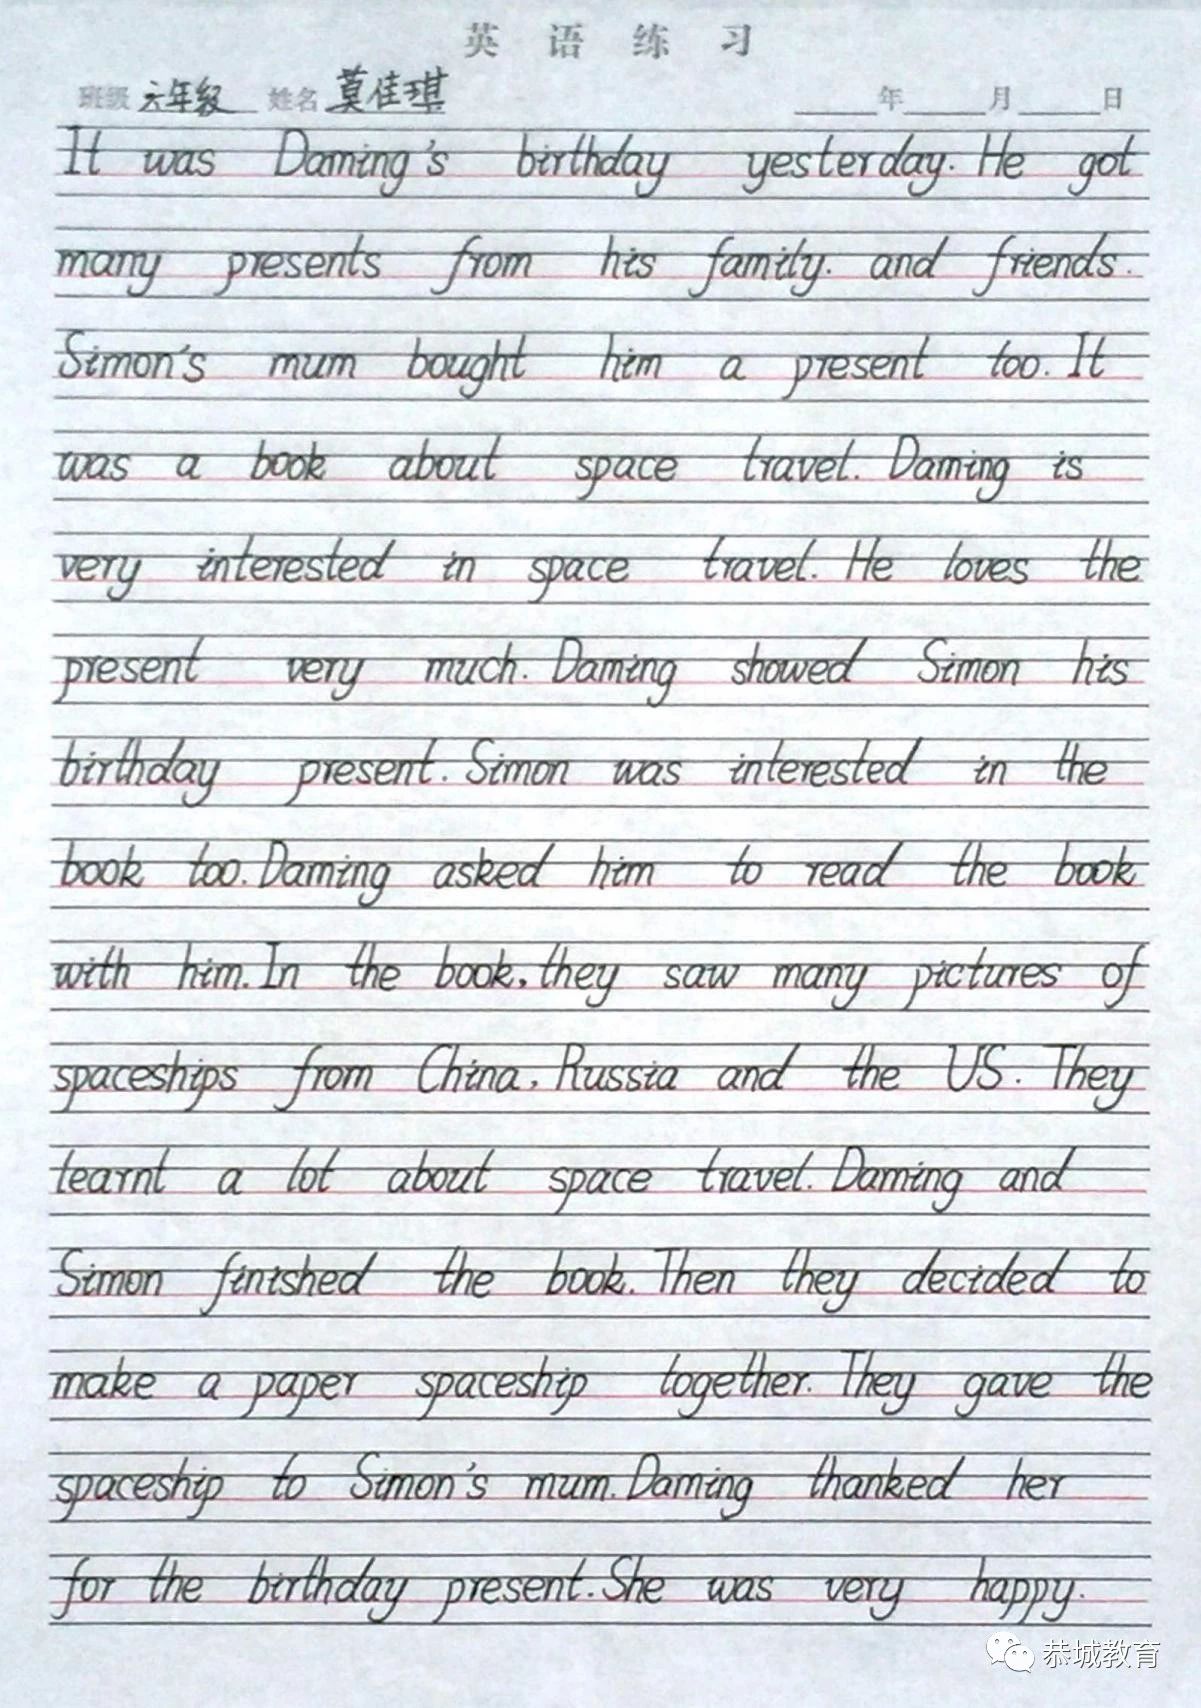 英 语 练 习
班级 六年级 姓名 莫佳琪 年 月 日
It was Daming's birthday yesterday. He got
many presents from his family. and friends.
Simon's mum bought him a present too. It
was a book about space travel. Daming is
very interested in space travel. He loves the
present very much. Daming showed Simon his
birthday present. Simon was interested in the
book too. Daming asked him to read the book
with him. In the book, they saw many pictures of
spaceships from China, Russia and the US. They
learnt a lot about space travel. Daming and
Simon finished the book. Then they decided to
make a paper spaceship together. They gave the
spaceship to Simon's mum. Daming thanked her
for the birthday present. She was very happy.
恭城教育